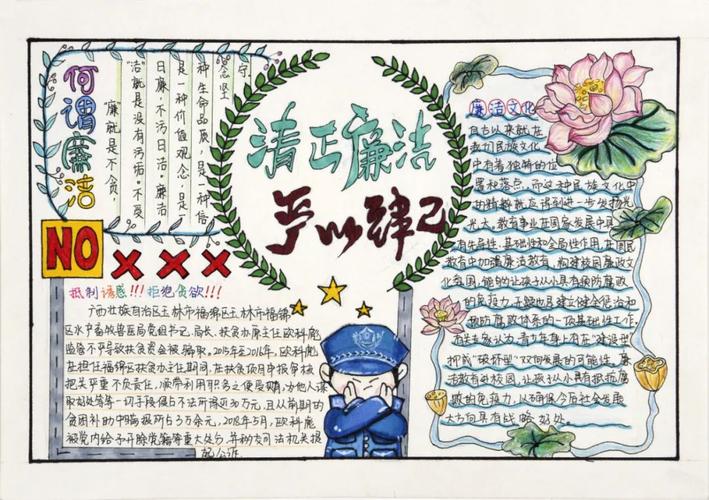 何谓廉洁
"廉就是不贪,
"洁"就是没有污垢。不受
曰廉,不污曰洁。廉洁
是一种价值观念,是一
种生命品质,是一种信
念坚
守。
清正廉洁
严以律己
NO
抵制诱惑!!!拒绝贪欲!!!
广西壮族自治区玉林市福绵区玉林市福绵
区水产畜牧兽医局党组书记、局长、扶贫办原主任欧科彪
监管不力导致扶贫资金被骗取。2015年至2016年,欧科彪
在担任福绵区扶贫办主任期间,在扶贫项目申报审核
把关严重不负责任,
取好处等等一切手段侵占不法所得近30万元,且从前期的
贫困补助中
被党内给予开除党籍等重大处分,并移交司法机关提
起公诉。
廉洁文化
自古以来就在
我们民族文化
中有着独特的位
置和落点,而这种民族文化中
的精髓就应得到进一步发扬光
光大,教育事业在国家发展中具
有先导性、基础性和全局性作用,在国民
教育中加强廉洁教育,构建校园廉政文
化氛围,能够让孩子从小具有预防腐败
的免疫力,
预防腐败体系的一项基础性工作
青少年身上有在"建设型
抑或"破坏型"双向发展的可能性,廉
洁教育进校园,让孩子从小具有抵抗腐
败的免疫力,以确保今后社会发展
大方向具有战略好处。